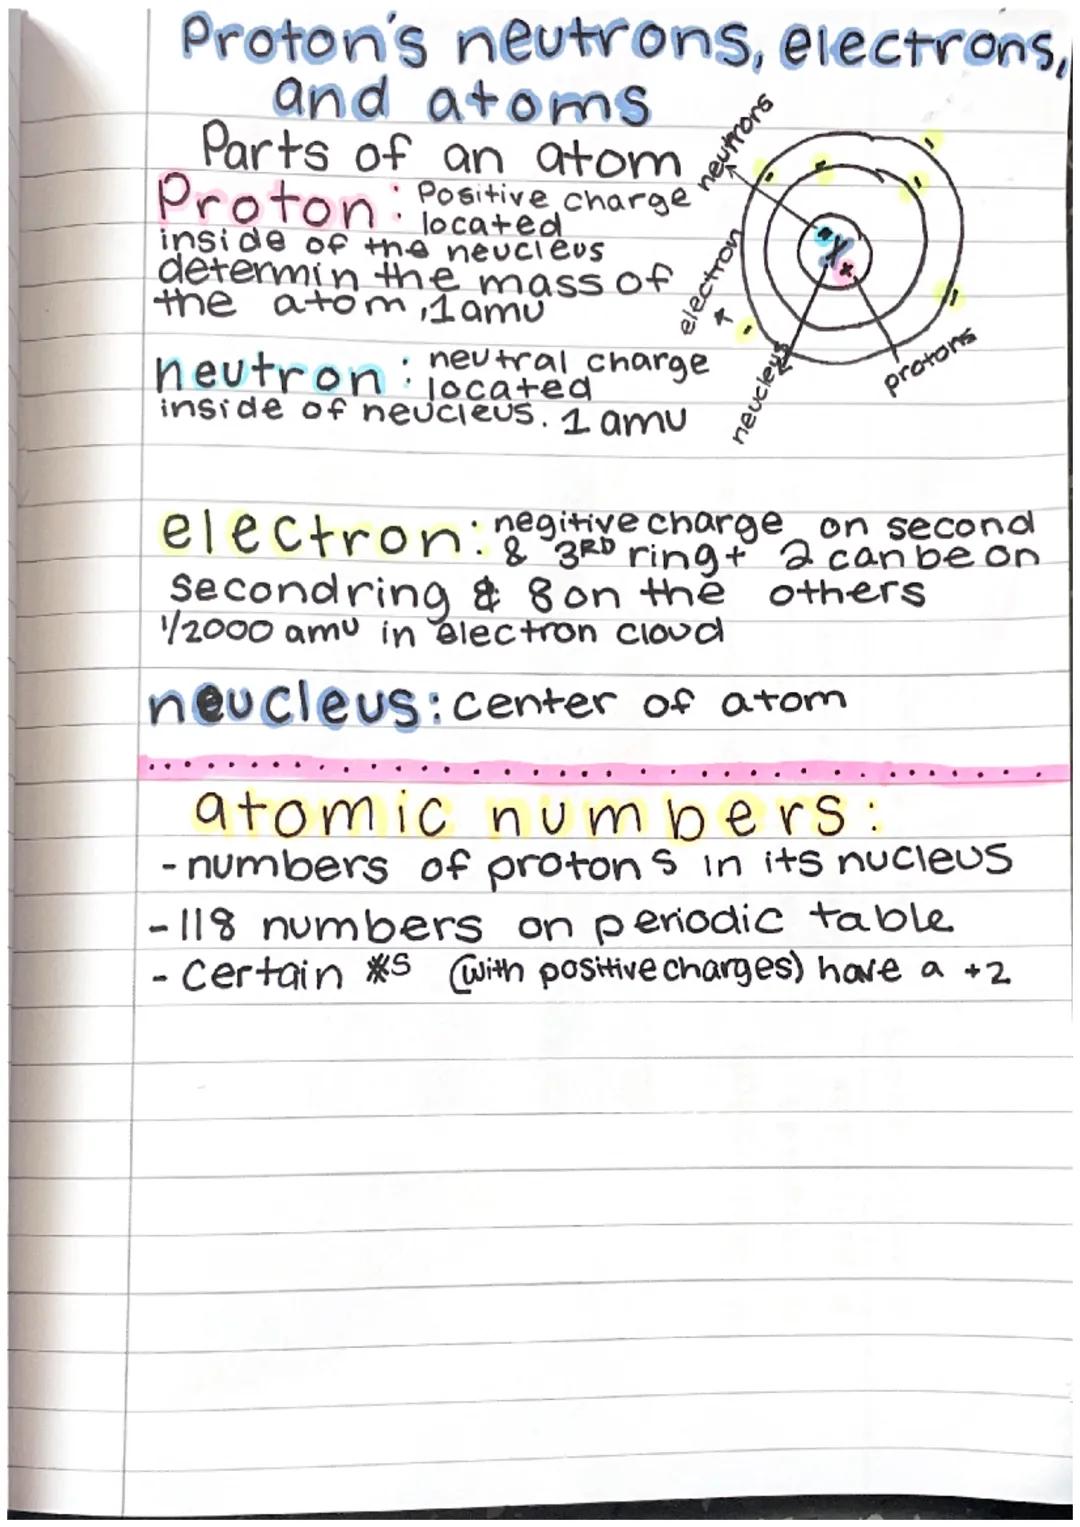 Proton's neutrons, electrons,
and atoms
Parts of an atom
Proton: Positive charge
located
inside of the neucleus
determin the mass of
the atom, 1amu
neutron: neutral charge
located
inside of neucleus. 1 amu
neutrons
electron
neucleus
protons
electron: negitive charge on second
& 3RD ring+ 2 can be on
second ring & 8 on the others
1/2000 amu in electron cloud
neucleus: center of atom
atomic numbers:
- numbers of protons in its nucleus
- 118 numbers on periodic table
- Certain #s (with positive charges) have a +2